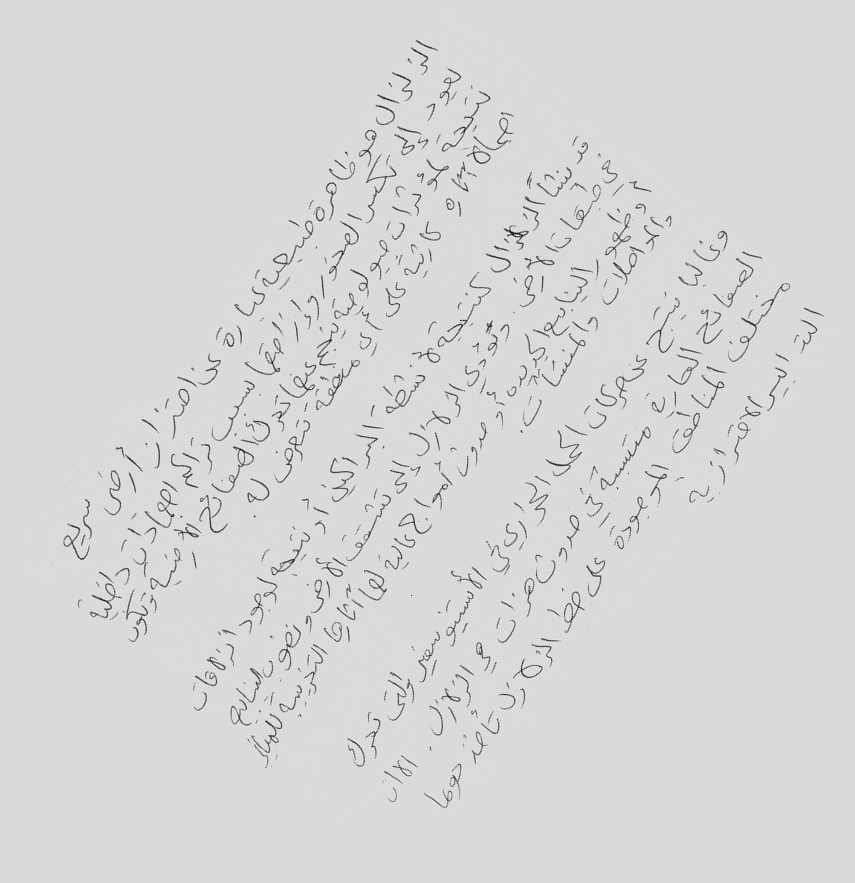 الزلزال هو ظاهرة طبيعية عبارة عن اهتزاز أرضي سريع
يعود إلى تكسر الصخور وإزاحتها بسبب تراكم اجهادات داخلية
نتيجة لمؤثرات جيولوجية ينجم عنها تحرك الصفائح الارضية وتكون
اجمالا آثاره كارثية على أي منطقة تتعرض له.
قد ينشأ الزلزال كنتيجة لأنشطة البراكين أو نتيجة لوجود انزلاقات
في طبقات الأرض. وتؤدي الزلازل إلى تشقق الأرض ونضوب الينابيع
أو ظهور الينابيع الجديدة أو حدوث أمواج عالية لها آثارها التخريبية للمباني
والمواصلات والمنشآت.
وغالبا ينتج عن حركات الحمل الحراري في الأستينوسفير والتي تحرك
الصفائح القارية متسببة في حدوث هزات هي الزلازل. الان
مختلف المناطق الموجودة على خط الزلازل تأخذ دوما
التدابير الاحترازية